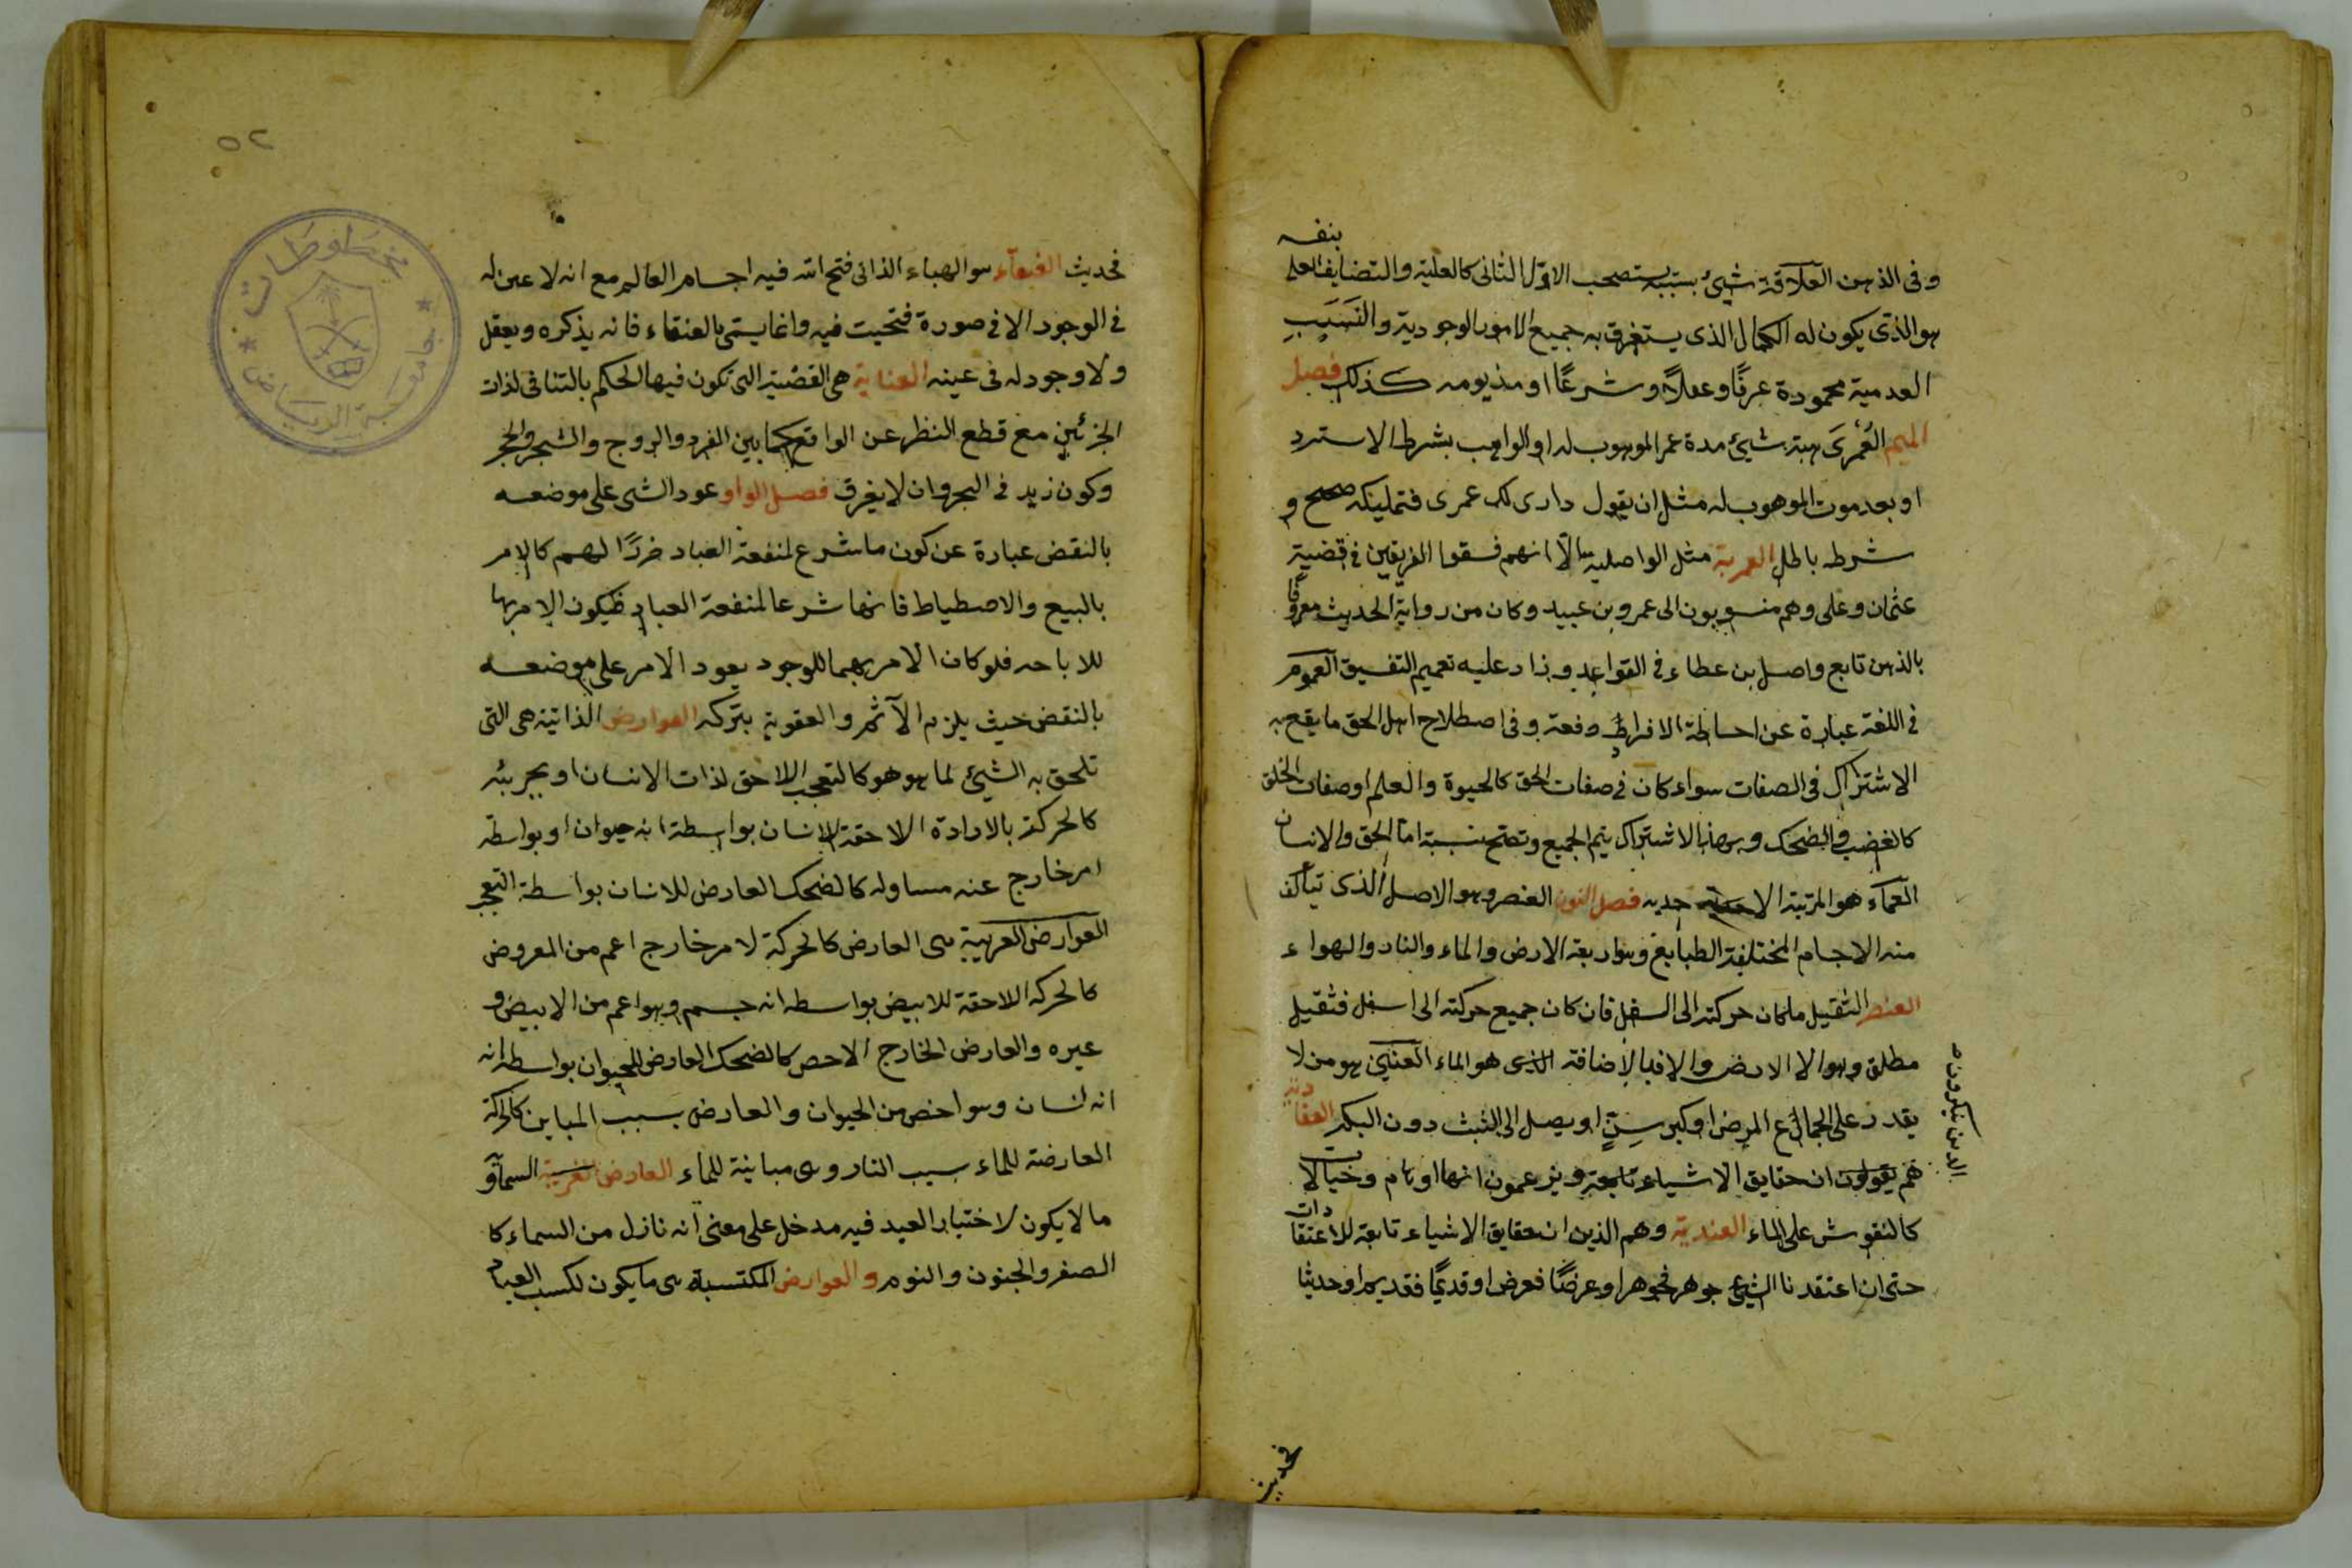 وفى الذهن العلاقة شيئ بسببه يستصحب الاول الثانى كالعلية والتضايف العلى
بنفسه
هو الذى يكون له الكمال الذى يستغرق به جميع الامور الوجودية والنسب
العدمية محمودة عرفًا وعقلاً وشرعًا او مذمومه كذلك فصل
الميم العُمْرَى هبة شيئ مدة عمر الموهوب له او الواهب بشرط الاسترد
او بعد موت الموهوب له مثل ان يقول دارى لك عمرى فتمليكه صحيح و
شرطه باطل العمرية مثل الواصلية الاّ انهم فسقوا الفريقين فى قضية
عثمان وعلى وهم منسوبون الى عمرو بن عبيد وكان من رواية الحديث معروفًا
بالذهن تابع واصل بن عطاء فى القواعد وزاد عليه تعميم التفسيق العموم
فى اللغة عبارة عن احاطة الافراد دفعة وفى اصطلاح اهل الحق ما يقع به
الاشتراك فى الصفات سواء كان فى صفات الحق كالحيوة والعلم او صفات الخلق
كالغضب والضحك وبهذا الاشتراك يتم الجميع وتصح نسبة اما الحق والانسان
العماء هو المرتبة الاحديه فصل النون العنصر وهو الاصل الذى تتألف
منه الاجسام المختلفة الطبايع وهو اربعة الارض والماء والنار والهواء
العنصر الثقيل ما كان حركته الى السفل فان كان جميع حركته الى اسفل فثقيل
مطلق وهو الا الارض والا فبالاضافة الذى هو الماء العنين هو من لا
يقدر على الجماع المرض او كبر سِنٍّ او يصل الى الثيب دون البكر العنادية
الذين ينكرون
هم يقولون ان حقايق الاشياء تابعة ويزعمون انها اوهام وخيالات
كالنقوش على الماء العندية وهم الذين ان حقايق الاشياء تابعة للاعتقادات
حتى ان اعتقدنا الشيئ جوهر فجوهر او عرضًا فعرض او قديمًا فقديم او حديثا
فحديث
٥٢
فحديث العنقآء هو الهباء الذى فتح الله فيه اجسام العالم مع انه لا عين له
فى الوجود الا فى صورة فتحيت فيه وانما يسمى بالعنقاء فانه يذكره ويعقل
ولا وجود له فى عينه العنادية هى القضية التى تكون فيها الحكم بالتنافى لذات
الجزئين مع قطع النظر عن الواقع كما بين الفرد والزوج والشجر والحجر
وكون زيد فى البحر وان لا يغرق فصل الواو عود الشى على موضعه
بالنقض عبارة عن كون ما شرع لمنفعة العباد ضررًا لهم كالامر
بالبيع والاصطياط فانهما شرعا لمنفعة العباد فيكون الامر بها
للاباحه فلو كان الامر بهما للوجود يعود الامر على موضعه
بالنقض حيث يلزم الآثم والعقوبة بتركه العوارض الذاتية هى التى
تلحق به الشيئ لما هو هو كالتعجب اللاحق لذات الانسان او بجزئه
كالحركة بالارادة اللاحقة للانسان بواسطة انه حيوان او بواسطة
امر خارج عنه مساو له كالضحك العارض للانسان بواسطة التعجب
العوارض الغريبة هى العارض كالحركة لامر خارج اعم من المعروض
كالحركه اللاحقة للابيض بواسطه انه جسم وهو اعم من الابيض و
غيره والعارض الخارج الاخص كالضحك العارض للحيوان بواسطه انه
انه انسان وهو اخص من الحيوان والعارض بسبب المباين كالحركة
العارضة للماء بسبب النار وهى مباينة للماء العارض الغريبة السمآو
ما لا يكون لاختيار العبد فيه مدخل على معنى انه نازل من السماء كا
الصغر والجنون والنوم والعوارض المكتسبة هى ما يكون لكسب العباد
مخطوطات
جامعة الرياض